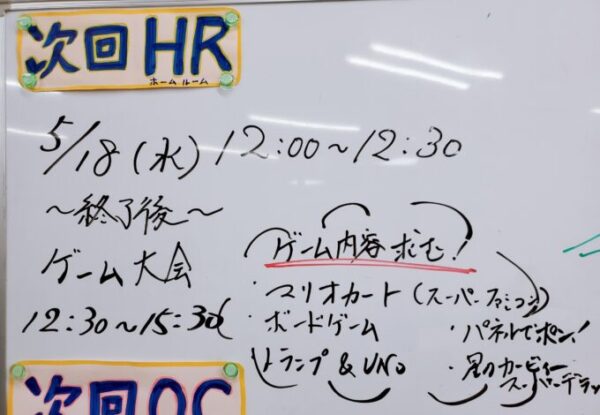 次回HR
ホームルーム
5/18(水) 12:00~12:30
~終了後~
ゲーム大会
12:30~15:30
ゲーム内容求む!
・マリオカート(スーパーファミコン)
・ボードゲーム
・パネルでポン!
トランプ&UNO
・星のカービィースーパーデラックス
次回OC